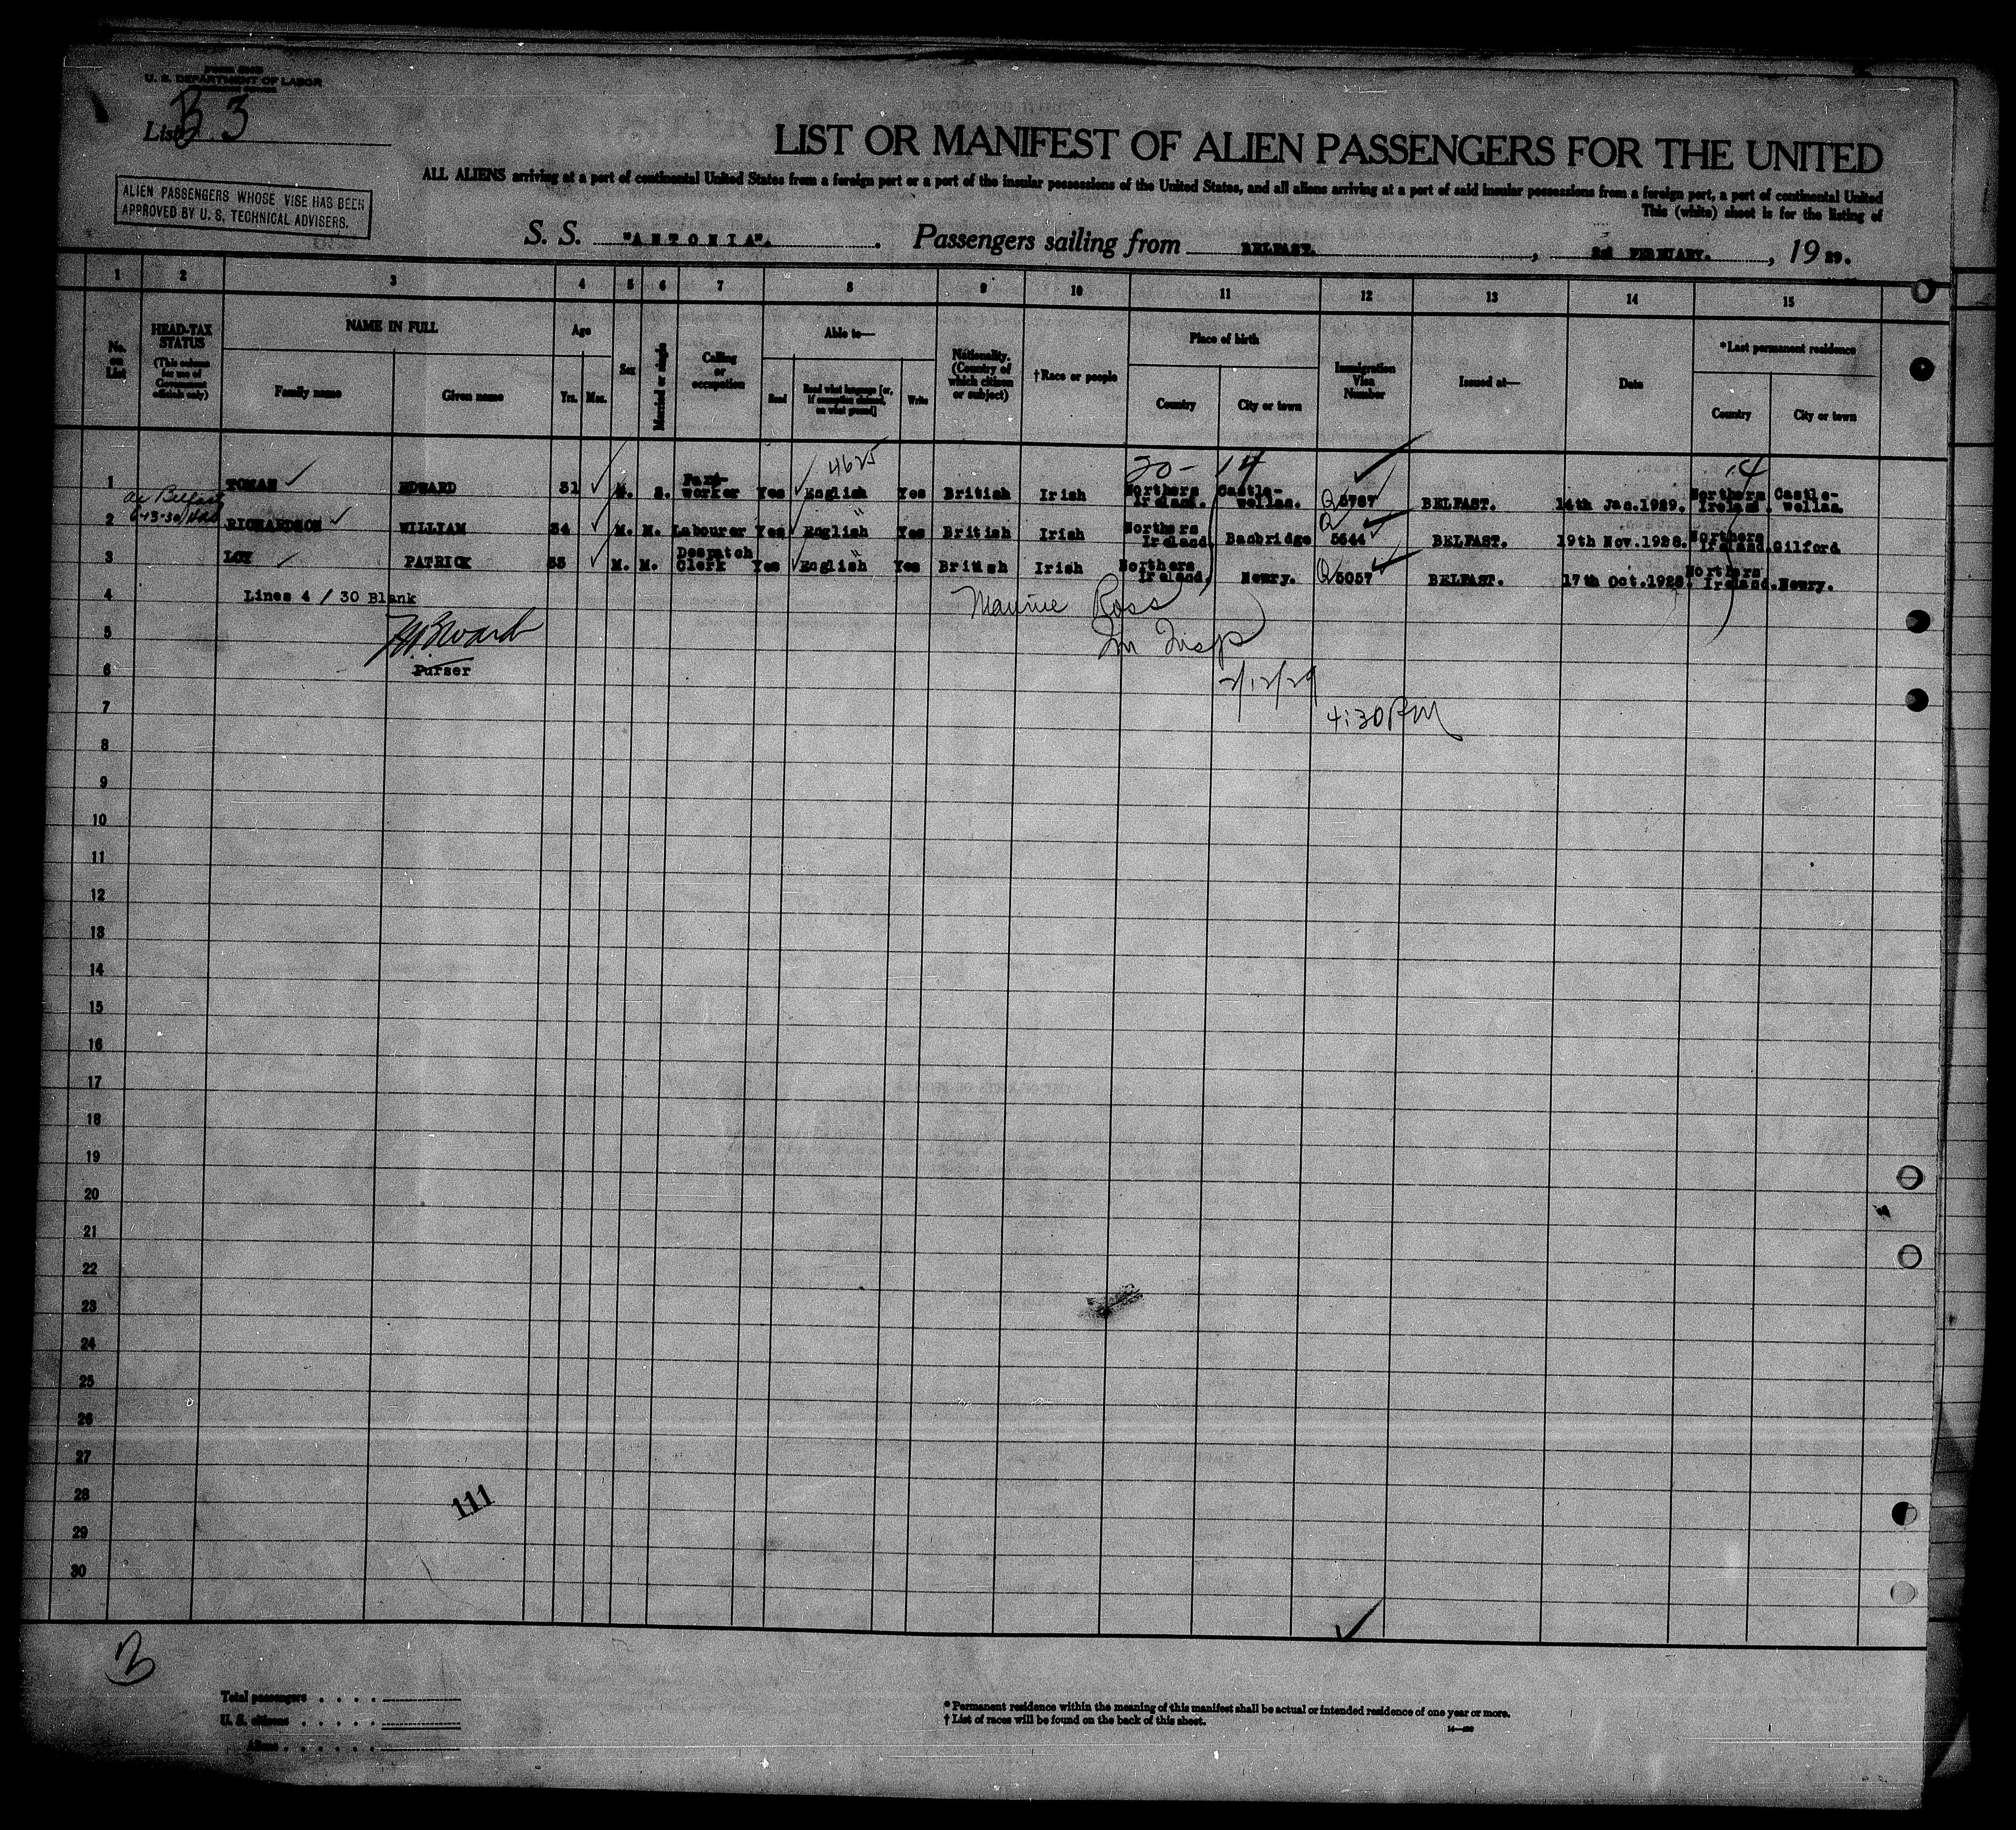 U. S. DEPARTMENT OF LABOR
List B 3
LIST OR MANIFEST OF ALIEN PASSENGERS FOR THE UNITED
ALL ALIENS arriving at a port of continental United States from a foreign port or a port of the insular possessions of the United States, and all aliens arriving at a port of said insular possessions from a foreign port, a port of continental United
This (white) sheet is for the listing of
ALIEN PASSENGERS WHOSE VISE HAS BEEN
APPROVED BY U. S. TECHNICAL ADVISERS.
S. S. "ANTONIA". Passengers sailing from BELFAST. , 2nd FEBRUARY. , 19 29.
1 2 3 4 5 6 7 8 9 10 11 12 13 14 15
No. on List
HEAD-TAX STATUS (This column for use of Government officials only)
NAME IN FULL
Family name Given name
Age
Yrs. Mos.
Sex
Married or single
Calling or occupation
Able to—
Read Read what language [or, if exemption claimed, on what ground] Write
Nationality. (Country of which citizen or subject)
†Race or people
Place of birth
Country City or town
Immigration Visa Number
Issued at—
Date
*Last permanent residence
Country City or town
4625 20- 14 14
1 TOMAN EDWARD 31 M. S. worker Yes English Yes British Irish Northern Ireland. Castle-wellan. Q 5787 BELFAST. 14th Jan.1929. Northern Ireland. Castle-wellan.
Belfast
6-13-30
2 RICHARDSON WILLIAM 34 M. M. Labourer Yes English " Yes British Irish Northern Ireland. Banbridge Q 5644 BELFAST. 19th Nov.1928. Northern Ireland. Gilford
3 LOY PATRICK 33 M. M. Despatch Clerk Yes English " Yes British Irish Northern Ireland. Newry. Q 5057 BELFAST. 17th Oct.1928. Northern Ireland. Newry.
4 Lines 4 / 30 Blank
Maurice Ross
5
Im Insp
6 Purser
2/12/29
7
4:30 PM
8
9
10
11
12
13
14
15
16
17
18
19
20
21
22
23
24
25
26
27
28
111
29
30
B
Total passengers . . . .
U. S. citizens . . . . .
Aliens . . . . . .
* Permanent residence within the meaning of this manifest shall be actual or intended residence of one year or more.
† List of races will be found on the back of this sheet.